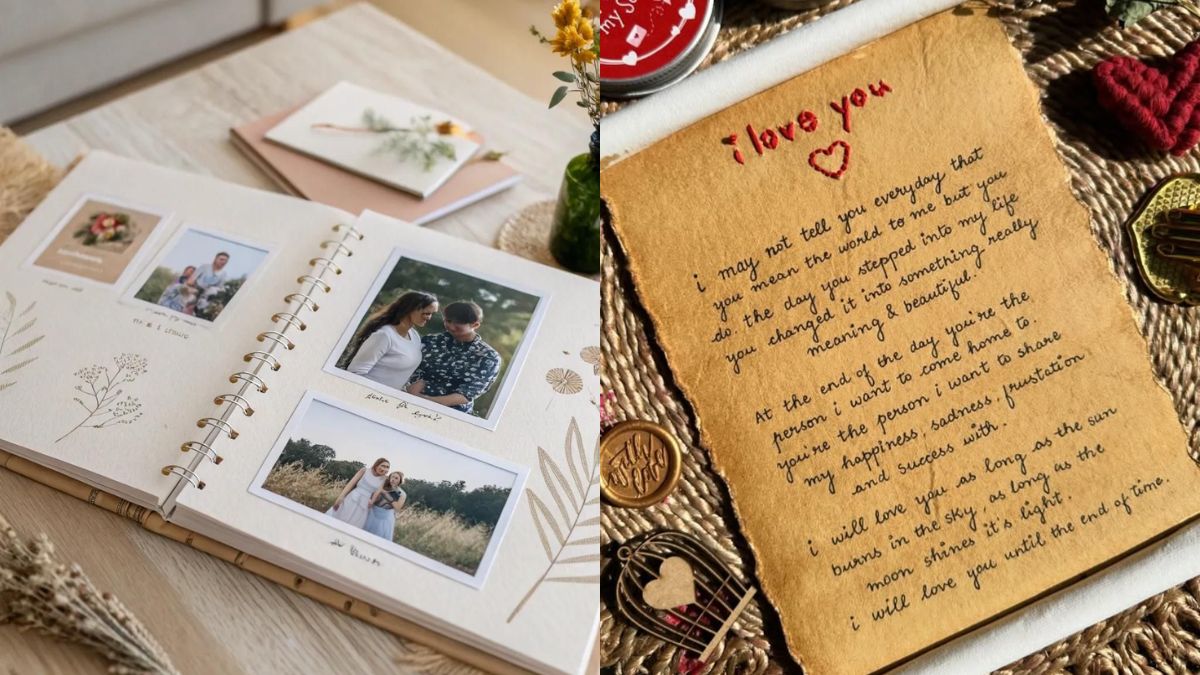 my So
i love you
i may not tell you everyday that
you mean the world to me but you
do. the day you stepped into my life
you changed it into something really
meaning & beautiful.
At the end of the day you're the
person i want to come home to.
you're the person i want to share
my happiness, sadness, frustation
and success with.
i will love you as long as the sun
burns in the sky, as long as the
moon shines it's light.
i will love you until the end of time.